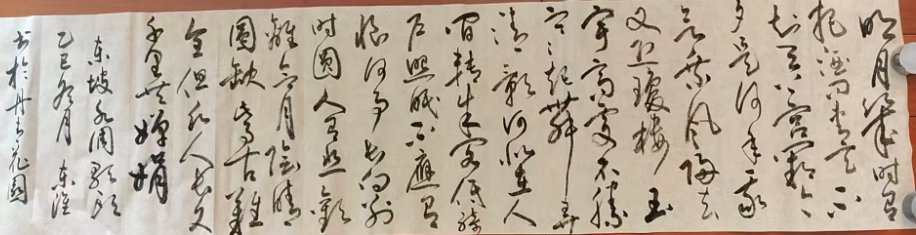 明月几时有
把酒问青天不
知天上宫阙今
夕是何年我
欲乘风归去
又恐琼楼玉
宇高处不胜
寒起舞弄
清影何似在人
间转朱阁低绮
户照眠不应有
恨何事长向别
时圆人有悲欢
离合月阴晴
圆缺此事古难
全但愿人长久
千里共婵娟
东坡水调歌头
乙巳冬月
书于丹